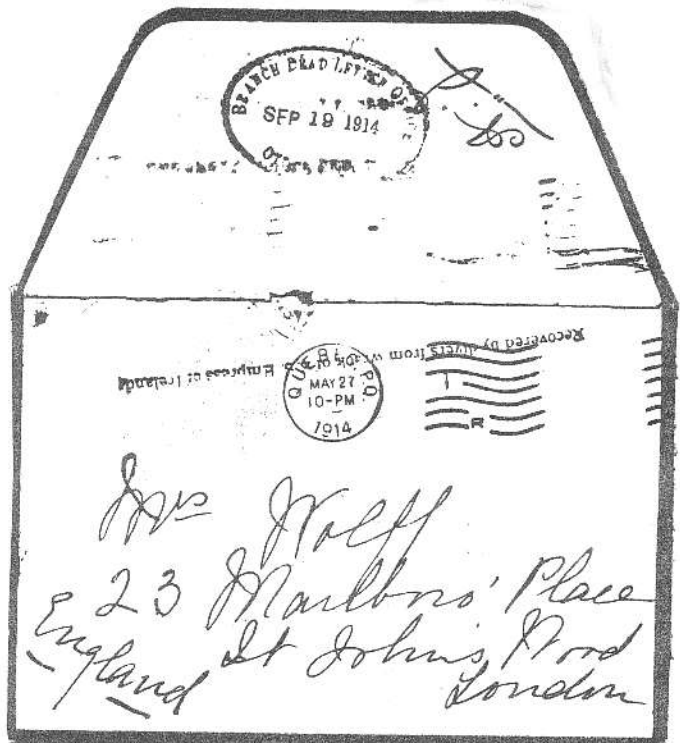 BRANCH DEAD LETTER OFFICE
SEP 19 1914
OTTAWA
Recovered by divers from wreck of SS Empress of Ireland
QUEBEC, P.Q.
MAY 27
10-PM
1914
R
Mrs Wolff
23 Marlboro' Place
St John's Wood
London
England